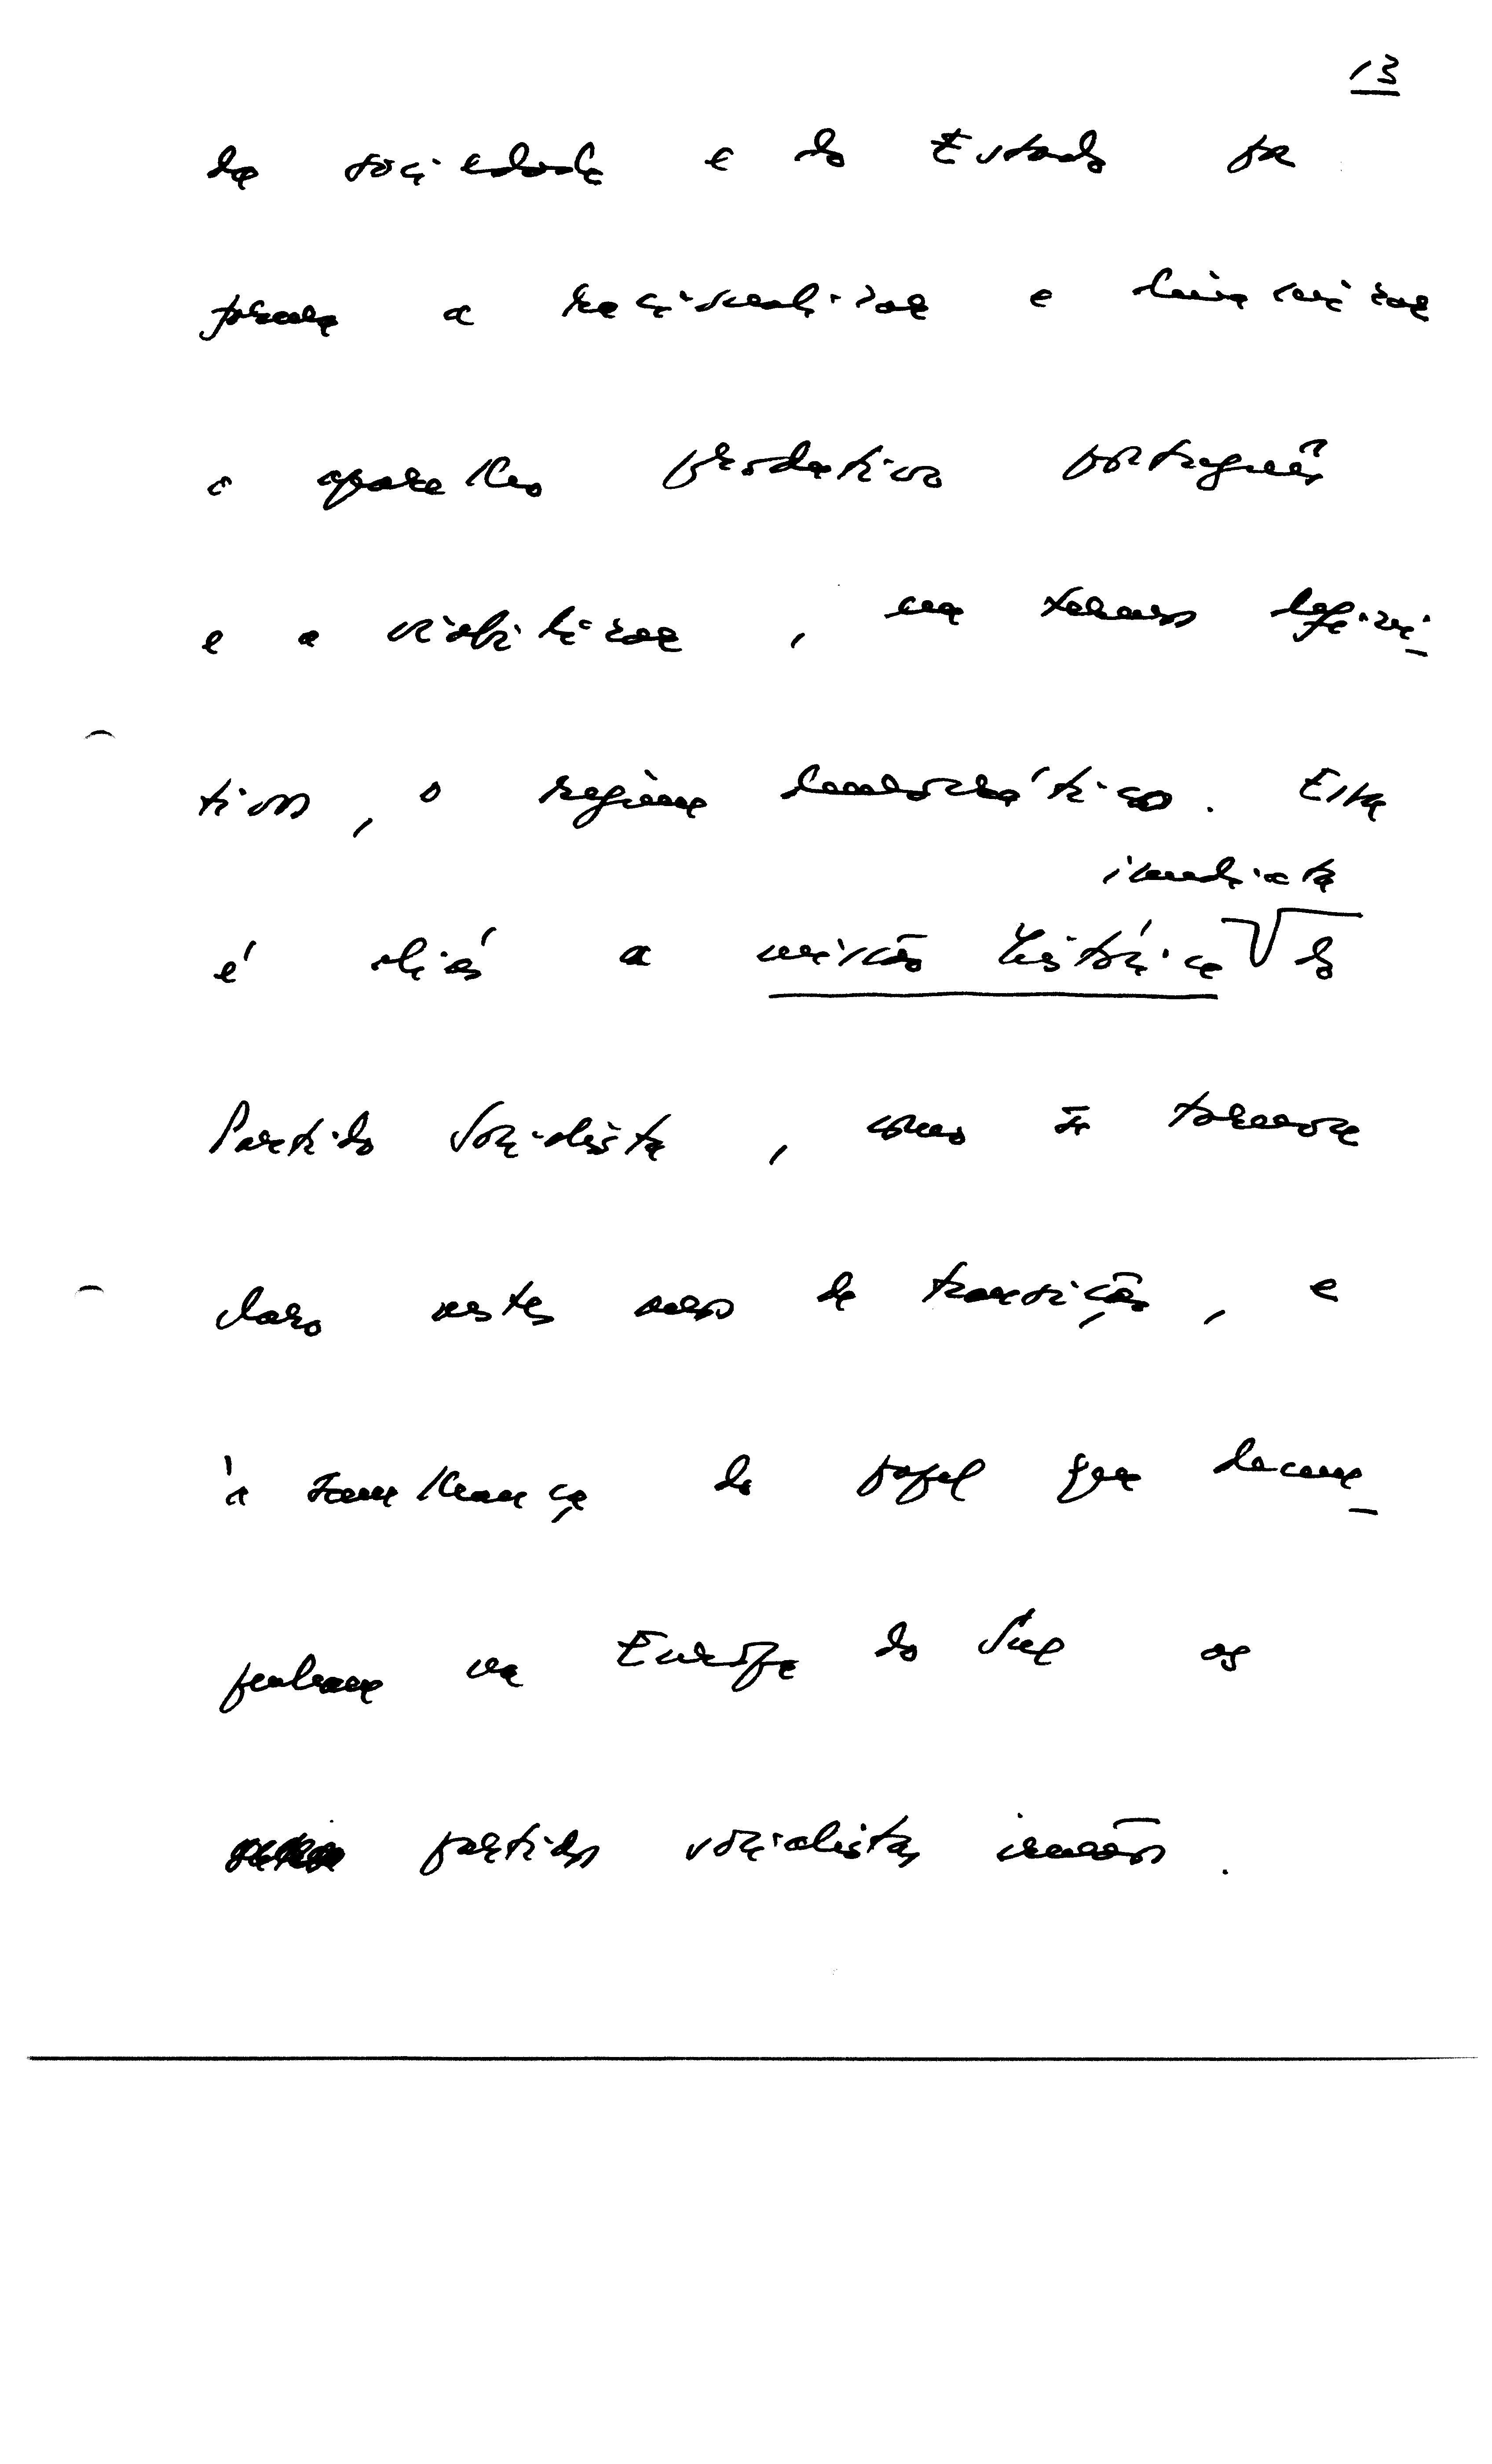 13
da sociedade e do Estado por
forma a racionalizar e dinamizar
o aparelho produtivo português
e a viabilizar, em termos defini-
tivos, o regime democrático. Esta
imediata
é aliás a missão histórica do
Partido Socialista, como se tornou
claro nestes anos de transição, e
à semelhança do papel que desem-
penharam na Europa do Sul os
partidos socialistas irmãos.